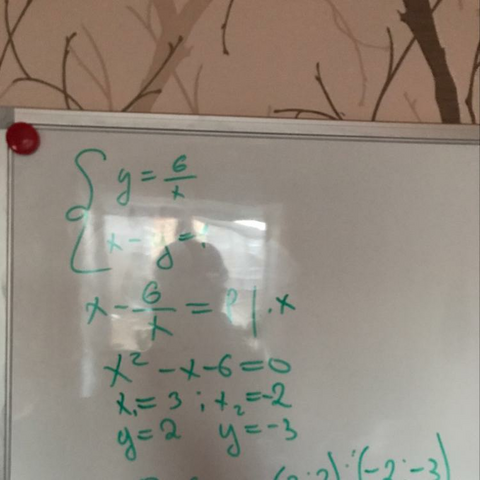 { y = 6/x
x - y = 1
x - 6/x = 1 | · x
x² - x - 6 = 0
x₁ = 3 ; x₂ = -2
y = 2 y = -3
(3; 2) ; (-2; -3)